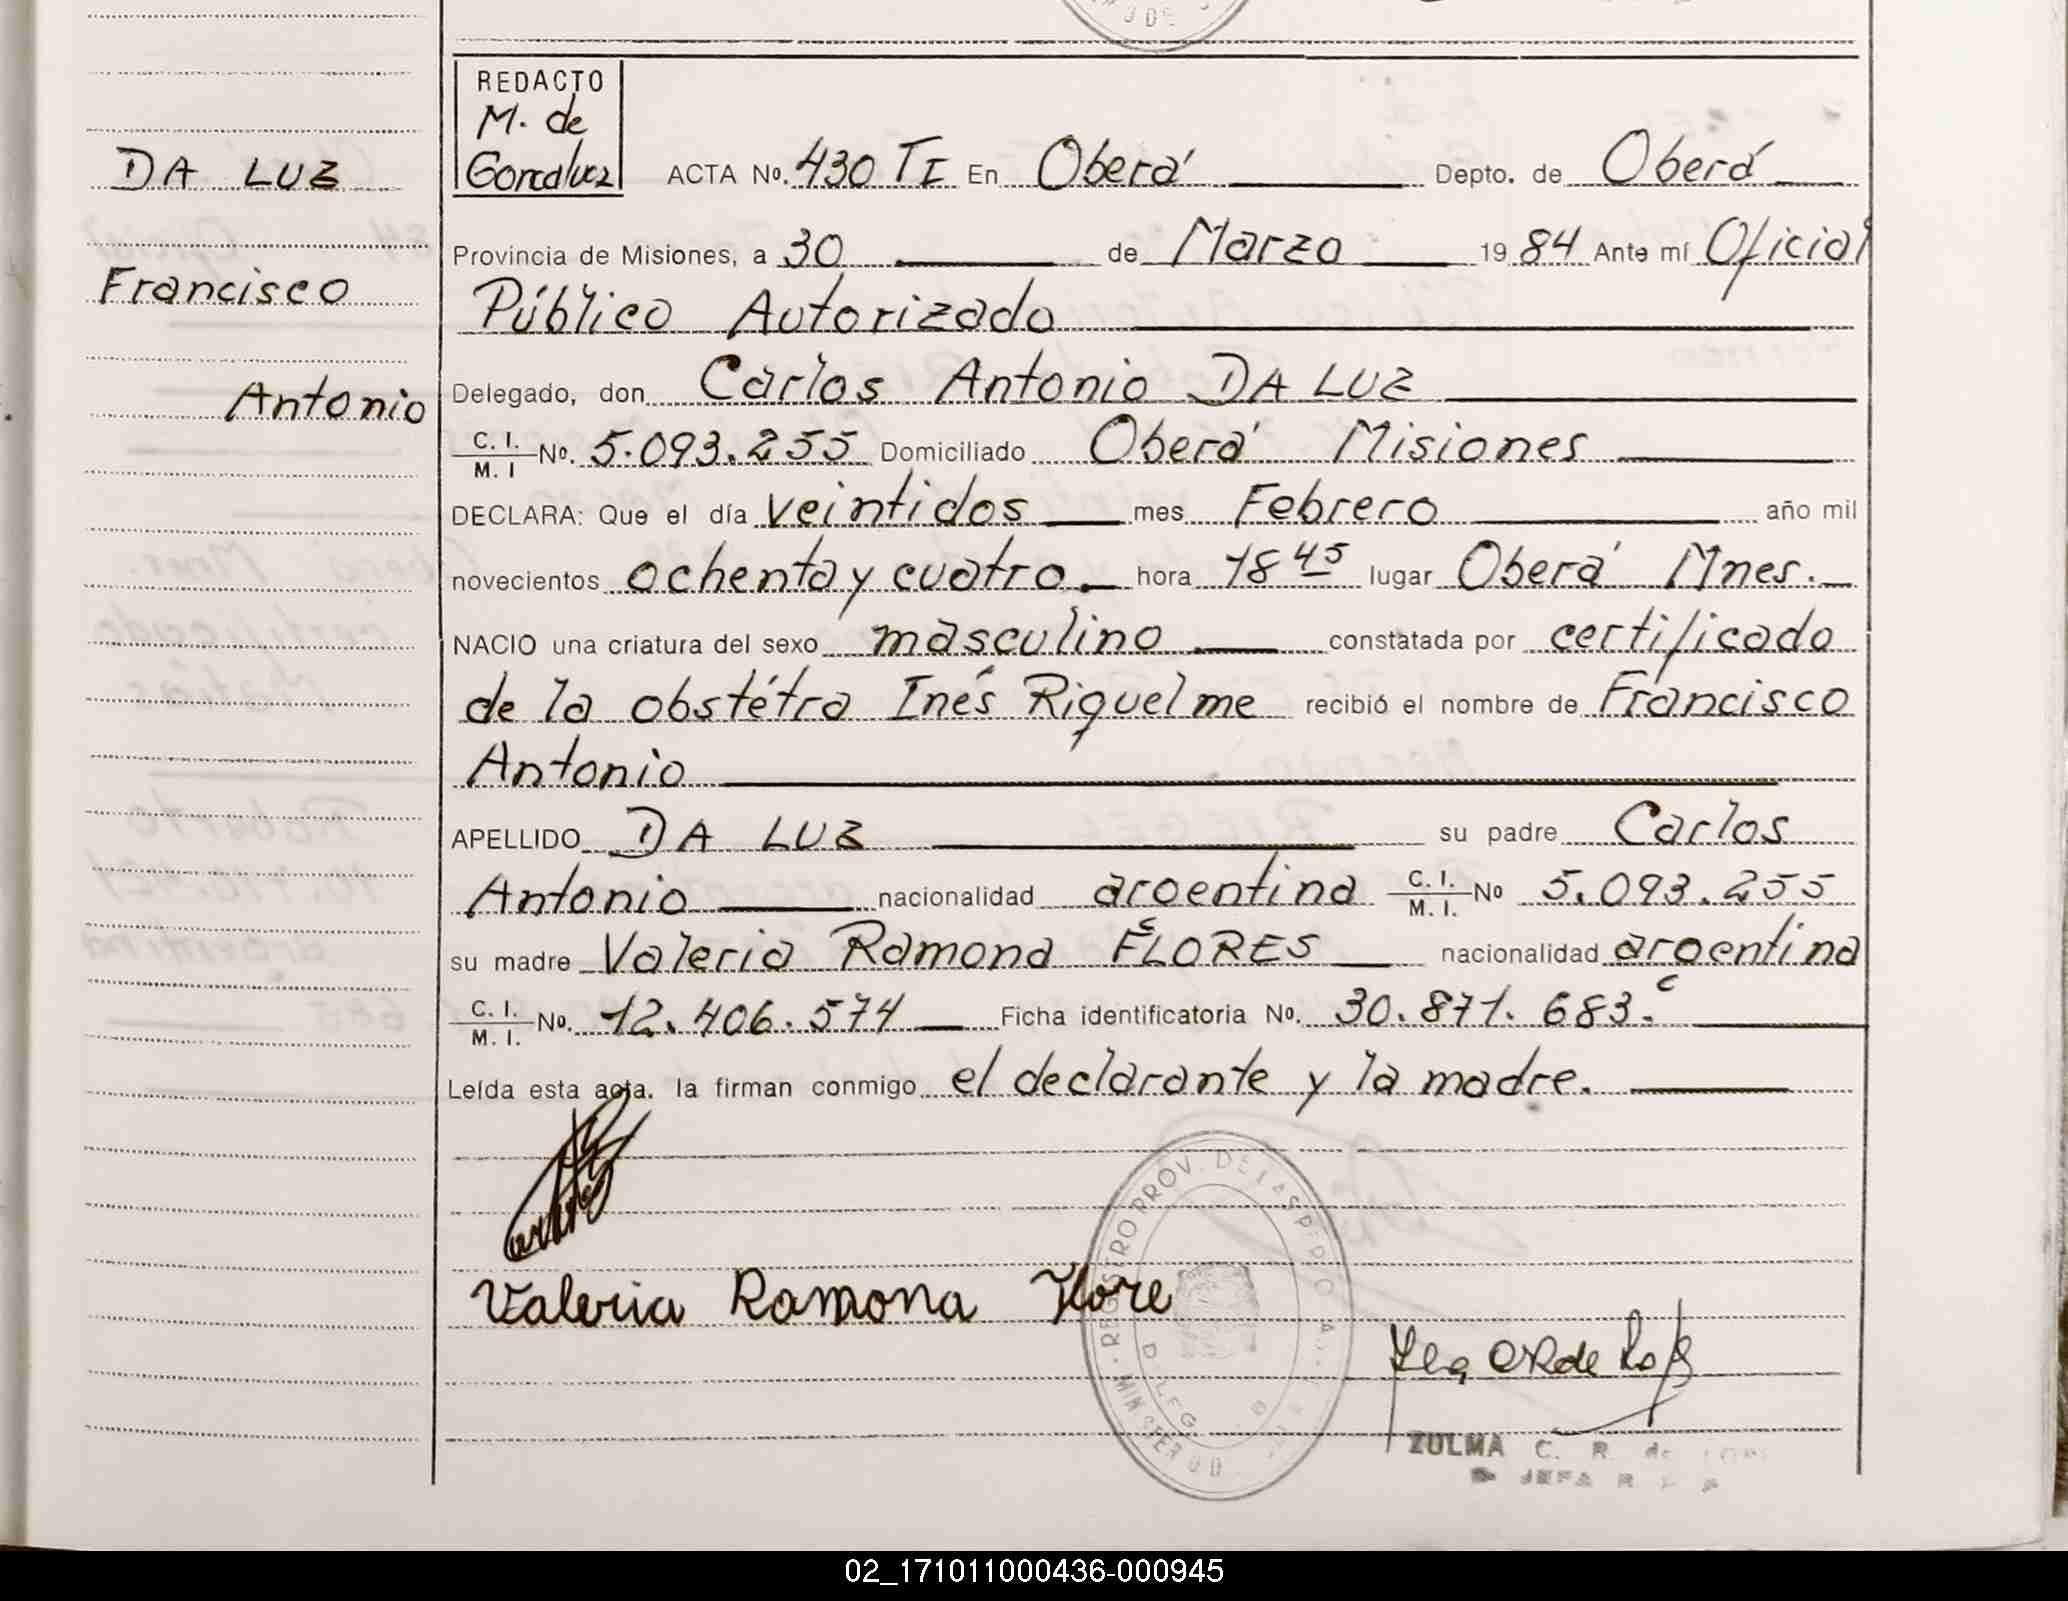 REDACTO
M. de
Goncalvez
ACTA No. 430 TI En Oberá Depto. de Oberá
DA LUZ
Provincia de Misiones, a 30 de Marzo 1984 Ante mí Oficial
Francisco
Público Autorizado
Antonio
Delegado, don Carlos Antonio DA LUZ
C. I. / M. I No. 5.093.255 Domiciliado Oberá Misiones
DECLARA: Que el día veintidos mes Febrero año mil
novecientos ochenta y cuatro. hora 18 45 lugar Oberá Mnes.
NACIO una criatura del sexo masculino constatada por certificado
de la obstétra Inés Riquelme recibió el nombre de Francisco
Antonio
APELLIDO DA LUZ su padre Carlos
Antonio nacionalidad argentina C. I. / M. I. No 5.093.255
su madre Valeria Ramona FLORES nacionalidad argentina
C. I. / M. I. No. 12.406.574 Ficha identificatoria No. 30.871.683.
Leída esta acta. la firman conmigo el declarante y la madre.
Valeria Ramona Flore
REGISTRO PROV. DE LAS PER
ZULMA C. R. de
JEFA R
02_171011000436-000945